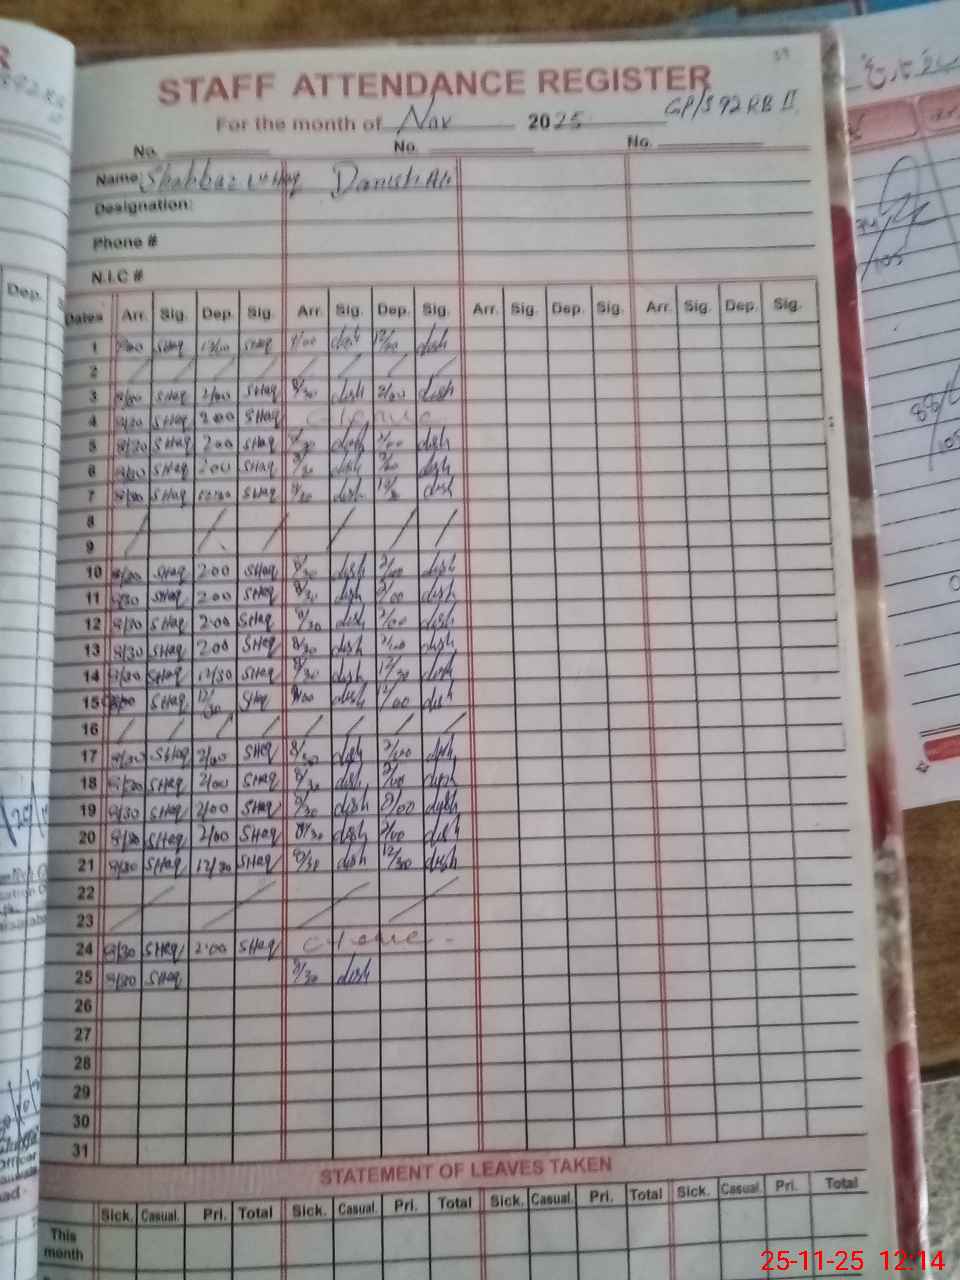 STAFF ATTENDANCE REGISTER
For the month of Nov 2025 GP/S 92 RB II
No. No. No.
Name Shahbaz ul Haq Danish Ali
Designation:
Phone #
N.I.C #
Dates Arr. Sig. Dep. Sig. Arr. Sig. Dep. Sig. Arr. Sig. Dep. Sig. Arr. Sig. Dep. Sig.
1 SHaq SHaq 9/00 dish 12/00 dish
2
3 SHaq 2/00 SHaq 8/30 dish 2/00 dish
4 8/30 SHaq 200 SHaq
5 8/30 SHaq 200 SHaq 8/30 dish 2/00 dish
6 8/30 SHaq 200 SHaq 8/30 dish 2/00 dish
7 8/30 SHaq SHaq 8/30 dish dish
8
9
10 8/30 SHaq 200 SHaq 8/30 dish 2/00 dish
11 8/30 SHaq 200 SHaq 8/30 dish 2/00 dish
12 8/30 SHaq 200 SHaq 8/30 dish 2/00 dish
13 8/30 SHaq 200 SHaq 8/30 dish 2/00 dish
14 8/30 SHaq 12/30 SHaq 8/30 dish 12/30 dish
15 SHaq 12/ SHaq 9/00 dish 12/00 dish
16
17 8/30 SHaq 2/00 SHaq 8/30 dish 2/00 dish
18 8/30 SHaq 2/00 SHaq 8/30 dish 2/00 dish
19 8/30 SHaq 2/00 SHaq 8/30 dish 2/00 dish
20 8/30 SHaq 2/00 SHaq 8/30 dish 2/00 dish
21 8/30 SHaq 12/30 SHaq 8/30 dish 12/30 dish
22
23
24 8/30 SHaq 2:00 SHaq
25 8/30 SHaq 8/30 dish
26
27
28
29
30
31
STATEMENT OF LEAVES TAKEN
Sick. Casual. Pri. Total Sick. Casual. Pri. Total Sick. Casual. Pri. Total Sick. Casual. Pri. Total
This
month
25-11-25 12:14